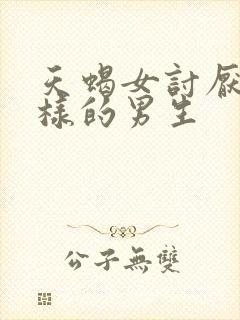 天蝎女討厭
樣的男生
公子無雙